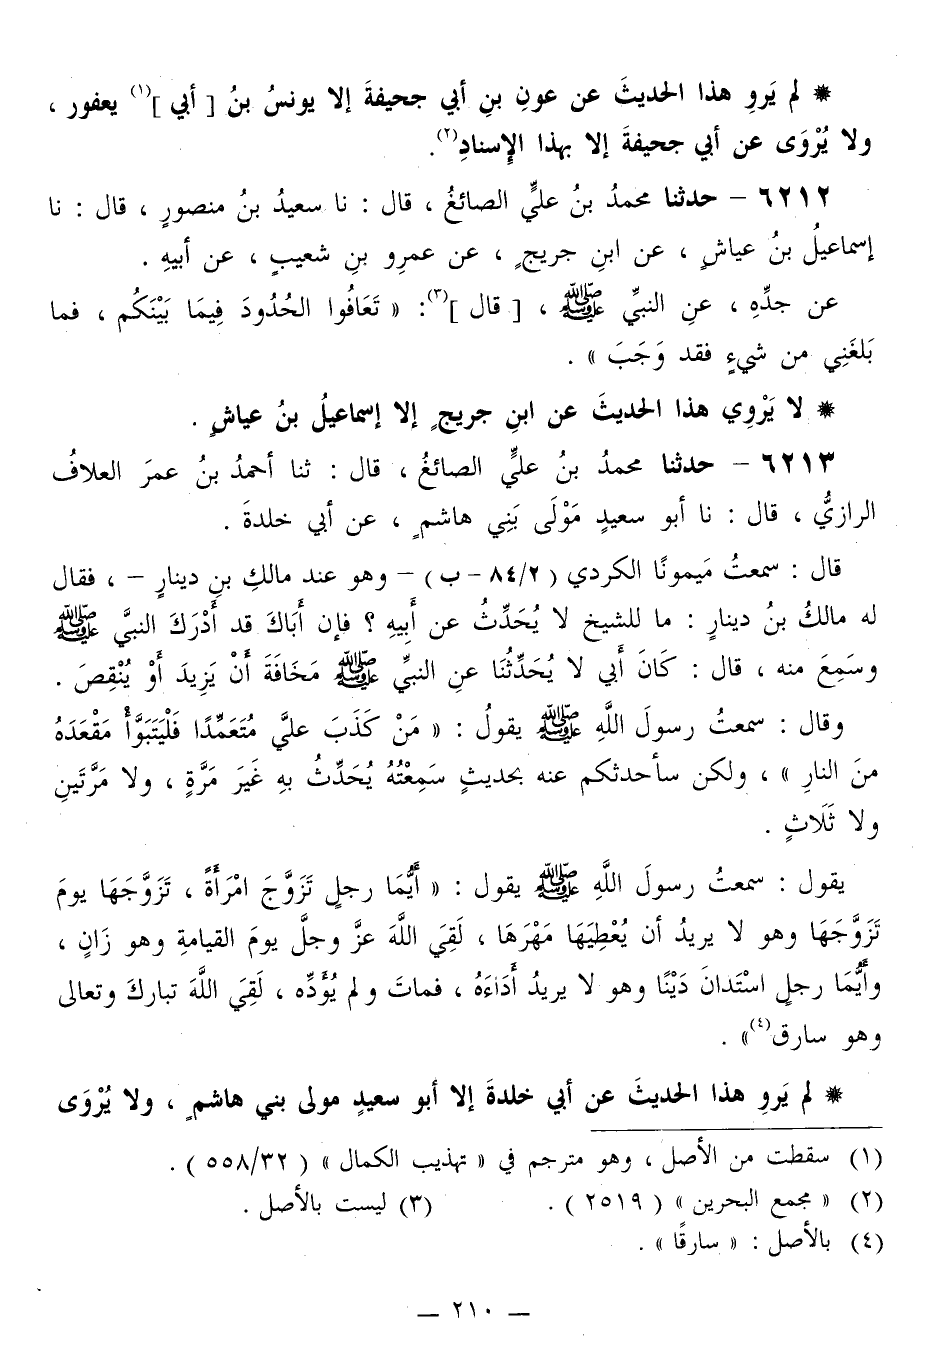 * لم يَروِ هذا الحديثَ عن عونِ بنِ أبي جحيفةَ إلا يونسُ بنُ [ أبي ](١) يعفور ،
ولا يُرْوَى عن أبي جحيفةَ إلا بهذا الإِسنادِ(٢).
٦٢١٢ – حدثنا محمدُ بنُ عليٍّ الصائغُ ، قال : نا سعيدُ بنُ منصورٍ ، قال : نا
إسماعيلُ بنُ عياشٍ ، عن ابنِ جريجٍ ، عن عمرِو بنِ شعيبٍ ، عن أبيهِ .
عن جدِّهِ ، عنِ النبيِّ ﷺ ، [ قال ](٣): « تَعَافُوا الحُدُودَ فِيمَا بَيْنَكُم ، فما
بَلغَنِي من شيءٍ فقد وَجَبَ » .
* لا يَرْوِي هذا الحديثَ عن ابنِ جريجٍ إلا إسماعيلُ بنُ عياشٍ .
٦٢١٣ – حدثنا محمدُ بنُ عليٍّ الصائغُ ، قال : ثنا أحمدُ بنُ عمرَ العلافُ
الرازيُّ ، قال : نا أبو سعيدٍ مَوْلَى بَنِي هاشمٍ ، عن أبي خلدةَ .
قال : سمعتُ مَيمونًا الكردي ( ٨٤/٢ – ب ) – وهو عند مالكِ بنِ دينارٍ – ، فقال
له مالكُ بنُ دينارٍ : ما للشيخِ لا يُحَدِّثُ عن أَبِيهِ ؟ فإن أَبَاكَ قد أَدْرَكَ النبيَّ ﷺ
وسَمِعَ منه ، قال : كَانَ أَبي لا يُحَدِّثُنَا عنِ النبيِّ ﷺ مَخَافَةَ أَنْ يَزِيدَ أَوْ يُنْقِصَ .
وقال : سمعتُ رسولَ اللَّهِ ﷺ يقولُ : « مَنْ كَذَبَ عليَّ مُتَعَمِّدًا فَلْيَتَبَوَّأْ مَقْعَدَهُ
منَ النارِ » ، ولكن سأحدثكم عنه بحديثٍ سَمِعْتُهُ يُحَدِّثُ بهِ غَيَرَ مَرَّةٍ ، ولا مَرَّتَينِ
ولا ثَلَاثٍ .
يقول : سمعتُ رسولَ اللَّهِ ﷺ يقول : « أَيُّمَا رجلٍ تَزَوَّجَ امْرَأَةً ، تَزَوَّجَهَا يومَ
تَزَوَّجَهَا وهو لا يريدُ أن يُعْطِيَهَا مَهْرَهَا ، لَقِيَ اللَّهَ عزَّ وجلَّ يومَ القيامةِ وهو زَانٍ ،
وأَيُّمَا رجلٍ اسْتَدانَ دَيْنًا وهو لا يريدُ أَدَاءَهُ ، فماتَ ولم يُؤَدِّه ، لَقِيَ اللَّهَ تباركَ وتعالى
وهو سارق(٤)» .
* لم يَروِ هذا الحديثَ عن أبي خلدةَ إلا أبو سعيدٍ مولى بني هاشمٍ ، ولا يُرْوَى
(١) سقطت من الأصل ، وهو مترجم في « تهذيب الكمال » ( ٥٥٨/٣٢ ) .
(٢) « مجمع البحرين » ( ٢٥١٩ ) . (٣) ليست بالأصل .
(٤) بالأصل : « سارقًا » .
— ٢١٠ —